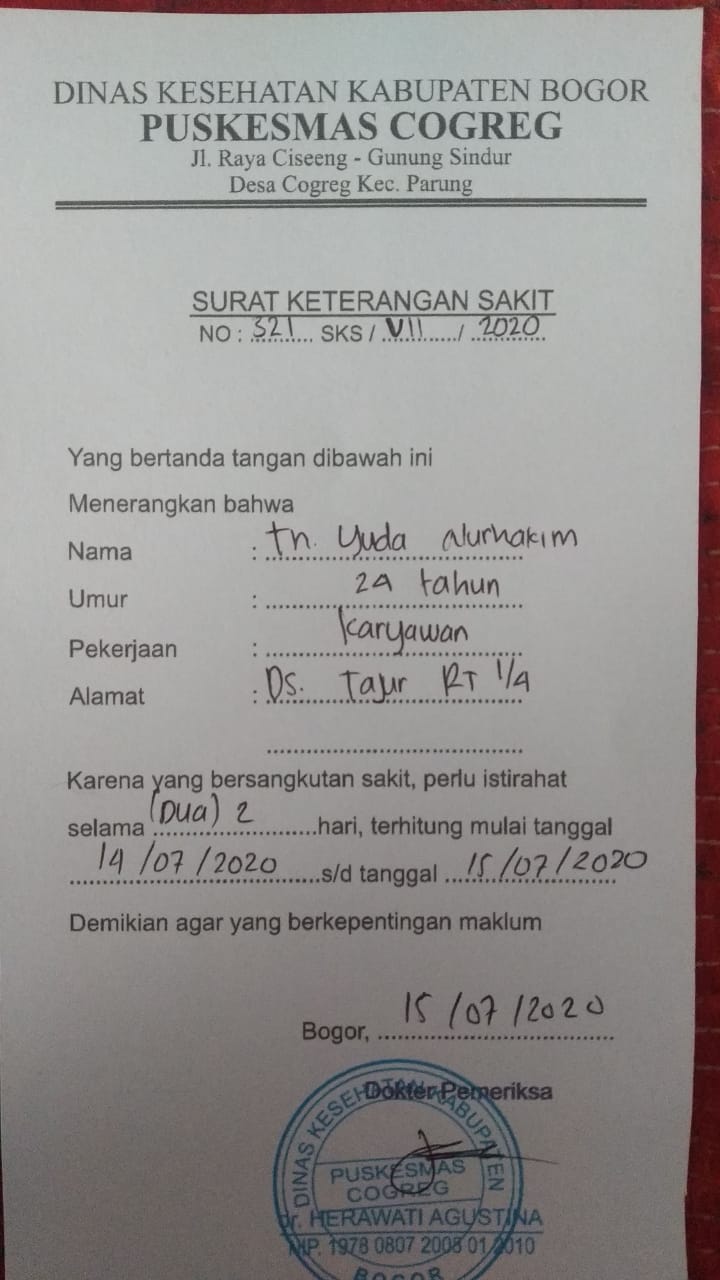 DINAS KESEHATAN KABUPATEN BOGOR
PUSKESMAS COGREG
Jl. Raya Ciseeng - Gunung Sindur
Desa Cogreg Kec. Parung
SURAT KETERANGAN SAKIT
NO : 321 SKS / VII / 2020
Yang bertanda tangan dibawah ini
Menerangkan bahwa
Nama : tn. Yuda Nurhakim
Umur : 24 tahun
Pekerjaan : Karyawan
Alamat : Ds. Tajur RT 1/4
Karena yang bersangkutan sakit, perlu istirahat
selama (Dua) 2 hari, terhitung mulai tanggal
14/07/2020 s/d tanggal 15/07/2020
Demikian agar yang berkepentingan maklum
Bogor, 15/07/2020
Dokter Pemeriksa
DINAS KESEHATAN KABUPATEN
PUSKESMAS
COGREG
dr. HERAWATI AGUSTINA
NIP. 1978 0807 2008 01 2010
BOGOR